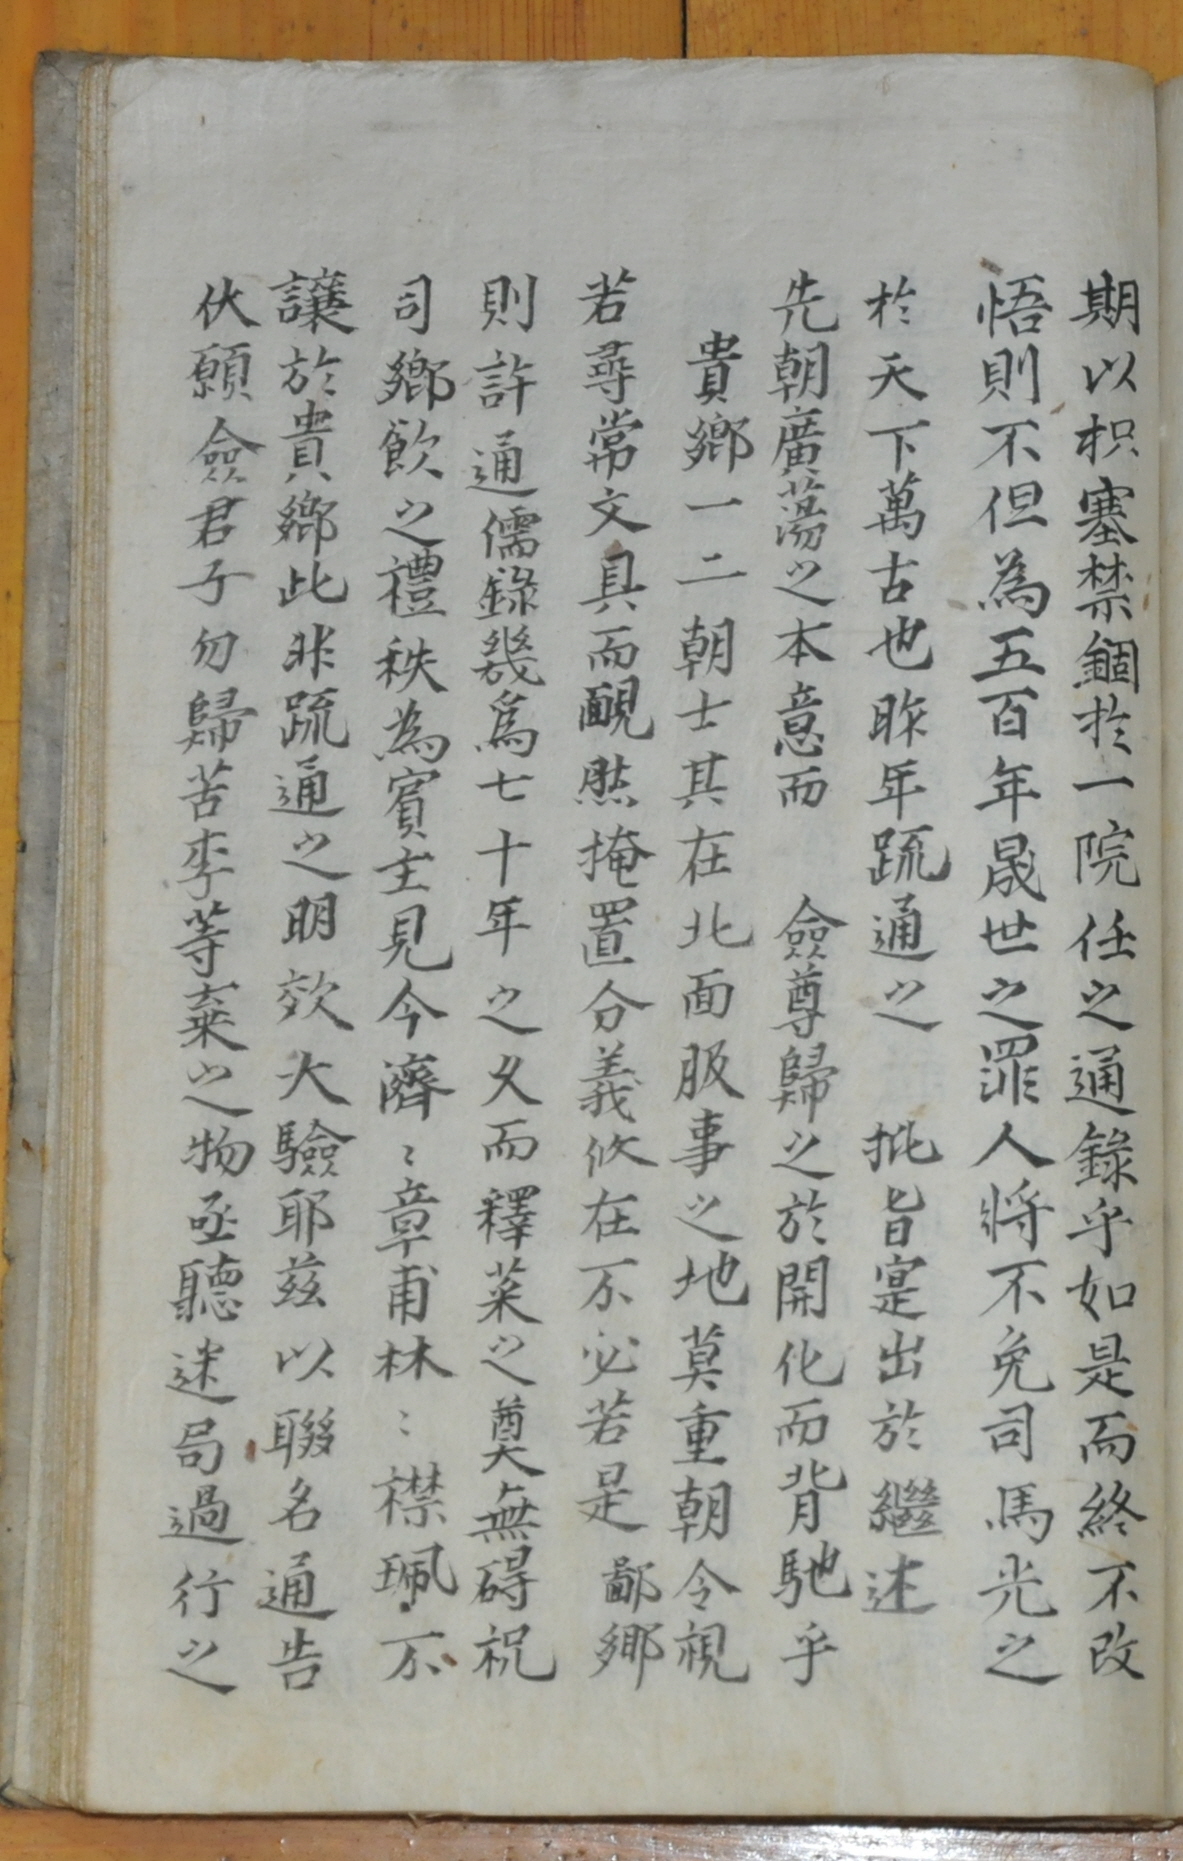 期以枳塞禁錮於一院任之通錄乎如是而終不改
悟則不但為五百年晟世之罪人將不免司馬光之
於天下萬古也昨年疏通之 批旨寔出於繼述
先朝廣蕩之本意而 僉尊歸之於開化而背馳乎
貴鄉一二朝士其在北面服事之地莫重朝令視
若尋常文具而靦然掩置分義攸在不必若是鄙鄉
則許通儒錄幾爲七十年之久而釋菜之奠無碍祝
司鄉飮之禮秩為賓主見今濟〻章甫林〻襟珮不
讓於貴鄉此非疏通之明效大驗耶玆以聯名通告
伏願僉君子勿歸苦李等棄之物亟聽迷局過行之